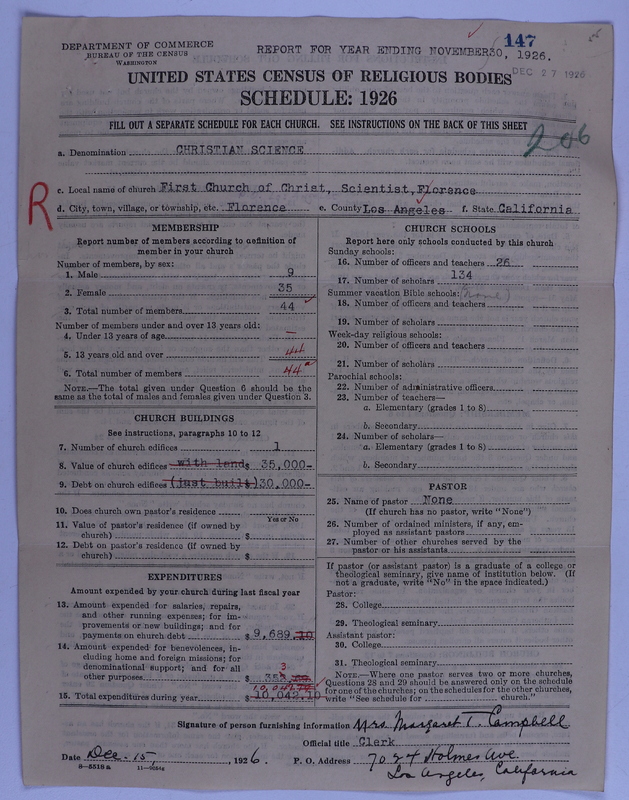 147
DEPARTMENT OF COMMERCE
BUREAU OF THE CENSUS
WASHINGTON
REPORT FOR YEAR ENDING NOVEMBER 30, 1926.
DEC 27 1926
UNITED STATES CENSUS OF RELIGIOUS BODIES
SCHEDULE: 1926
FILL OUT A SEPARATE SCHEDULE FOR EACH CHURCH. SEE INSTRUCTIONS ON THE BACK OF THIS SHEET
206
a. Denomination CHRISTIAN SCIENCE
R
c. Local name of church First Church of Christ, Scientist, Florence
d. City, town, village, or township, etc. Florence e. County Los Angeles f. State California
MEMBERSHIP
Report number of members according to definition of
member in your church
Number of members, by sex:
1. Male 9
2. Female 35
3. Total number of members 44
Number of members under and over 13 years old:
4. Under 13 years of age —
5. 13 years old and over 44
6. Total number of members 44
NOTE.—The total given under Question 6 should be the
same as the total of males and females given under Question 3.
CHURCH BUILDINGS
See instructions, paragraphs 10 to 12
7. Number of church edifices 1
8. Value of church edifices with land $ 35,000-
9. Debt on church edifices (just built) 30,000-
10. Does church own pastor's residence
Yes or No
11. Value of pastor's residence (if owned by
church) $
12. Debt on pastor's residence (if owned by
church) $
EXPENDITURES
Amount expended by your church during last fiscal year
13. Amount expended for salaries, repairs,
and other running expenses; for im-
provements or new buildings; and for
payments on church debt $ 9,689.10
14. Amount expended for benevolences, in-
cluding home and foreign missions; for
denominational support; and for all
other purposes $
15. Total expenditures during year $ 10,042.10
CHURCH SCHOOLS
Report here only schools conducted by this church
Sunday schools:
16. Number of officers and teachers 26
17. Number of scholars 134
Summer vacation Bible schools: (none)
18. Number of officers and teachers
19. Number of scholars
Week-day religious schools:
20. Number of officers and teachers
21. Number of scholars
Parochial schools:
22. Number of administrative officers
23. Number of teachers—
a. Elementary (grades 1 to 8)
b. Secondary
24. Number of scholars—
a. Elementary (grades 1 to 8)
b. Secondary
PASTOR
25. Name of pastor None
(If church has no pastor, write "None")
26. Number of ordained ministers, if any, em-
ployed as assistant pastors
27. Number of other churches served by the
pastor or his assistants
If pastor (or assistant pastor) is a graduate of a college or
theological seminary, give name of institution below. (If
not a graduate, write "No" in the space indicated.)
Pastor:
28. College
29. Theological seminary
Assistant pastor:
30. College
31. Theological seminary
NOTE.—Where one pastor serves two or more churches,
Questions 28 and 29 should be answered only on the schedule
for one of the churches; on the schedules for the other churches,
write "See schedule for church."
Signature of person furnishing information Mrs. Margaret T. Campbell
Official title Clerk
Date Dec. 15, 1926. P. O. Address 7024 Holmes Ave.
Los Angeles, California
8—5518 a